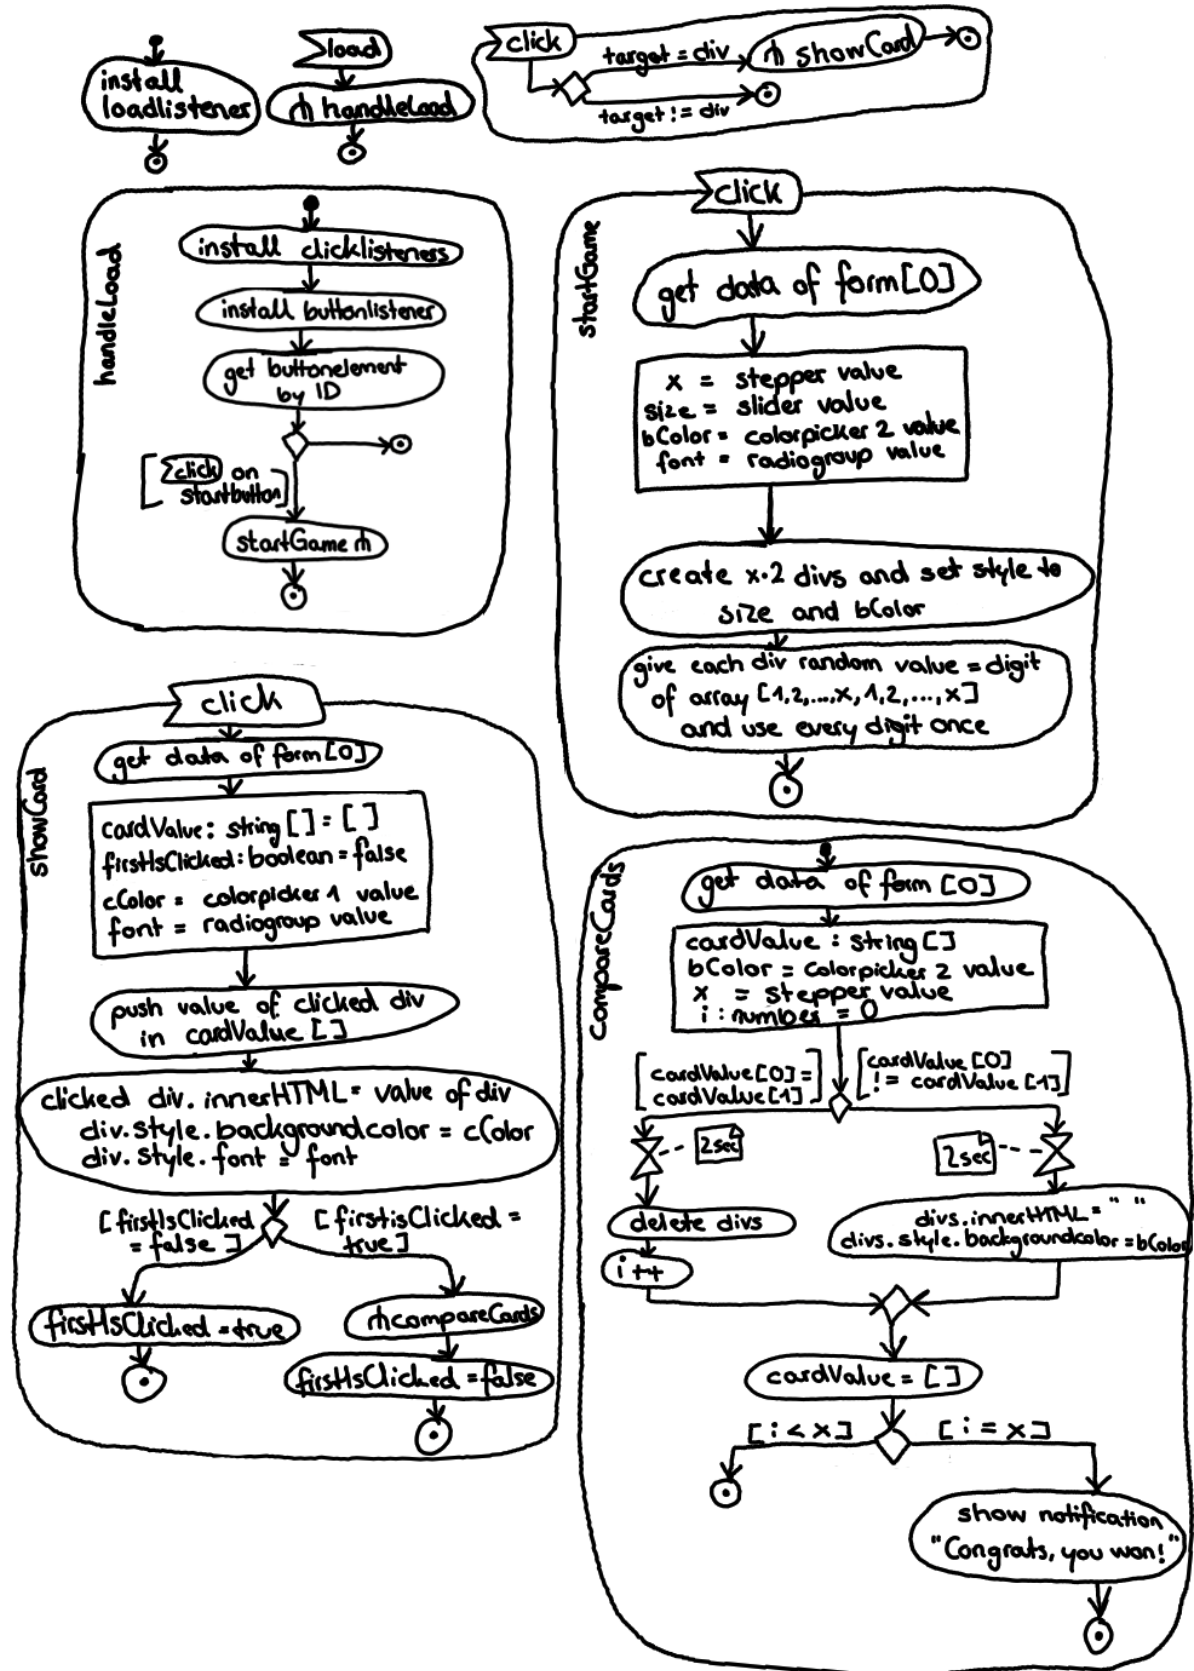 install
loadlistener
load
handleLoad
click
target = div
showCard
target != div
handleLoad
install clicklisteners
install buttonlistener
get buttonelement
by ID
[click on
startbutton]
startGame
startGame
click
get data of form[0]
x = stepper value
size = slider value
bColor = colorpicker 2 value
font = radiogroup value
create x·2 divs and set style to
size and bColor
give each div random value = digit
of array [1,2,...,x,1,2,...,x]
and use every digit once
showCard
click
get data of form[0]
cardValue: string [] = [ ]
firstIsClicked: boolean = false
cColor = colorpicker 1 value
font = radiogroup value
push value of clicked div
in cardValue []
clicked div.innerHTML = value of div
div.style.backgroundcolor = cColor
div.style.font = font
[firstIsClicked
= false]
[firstisClicked =
true]
firstIsClicked = true
compareCards
firstIsClicked = false
compareCards
get data of form [0]
cardValue : string []
bColor = Colorpicker 2 value
x = stepper value
i : number = 0
[cardValue[0] =
cardValue[1]]
[cardValue [0]
!= cardValue [1]]
2sec
2sec
delete divs
i ++
divs.innerHTML = " "
divs.style.backgroundcolor = bColor
cardValue = []
[i < x]
[i = x]
show notification
"Congrats, you won!"